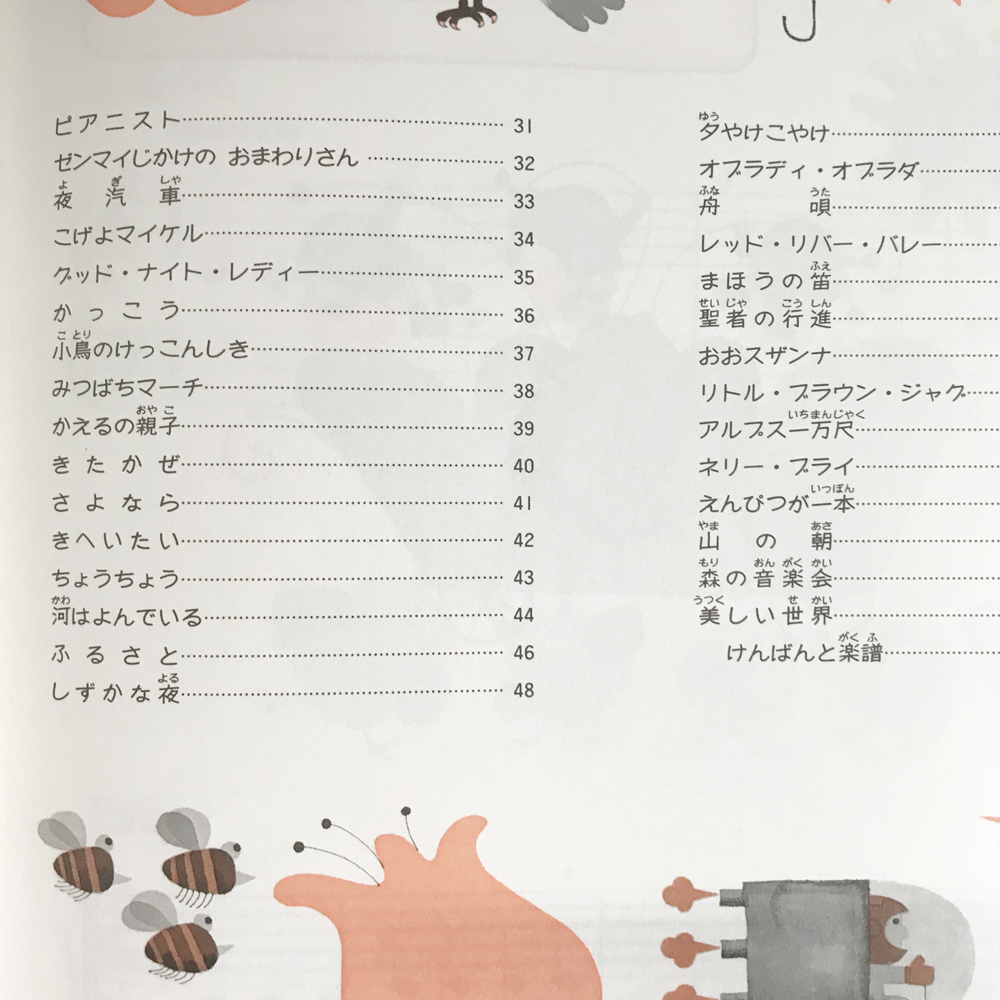 ピアニスト 31
ゼンマイじかけの おまわりさん 32
夜汽車 33
こげよマイケル 34
グッド・ナイト・レディー 35
かっこう 36
小鳥のけっこんしき 37
みつばちマーチ 38
かえるの親子 39
きたかぜ 40
さよなら 41
きへいたい 42
ちょうちょう 43
河はよんでいる 44
ふるさと 46
しずかな夜 48
夕やけこやけ
オブラディ・オブラダ
舟唄
レッド・リバー・バレー
まほうの笛
聖者の行進
おおスザンナ
リトル・ブラウン・ジャグ
アルプス一万尺
ネリー・ブライ
えんぴつが一本
山の朝
森の音楽会
美しい世界
けんばんと楽譜